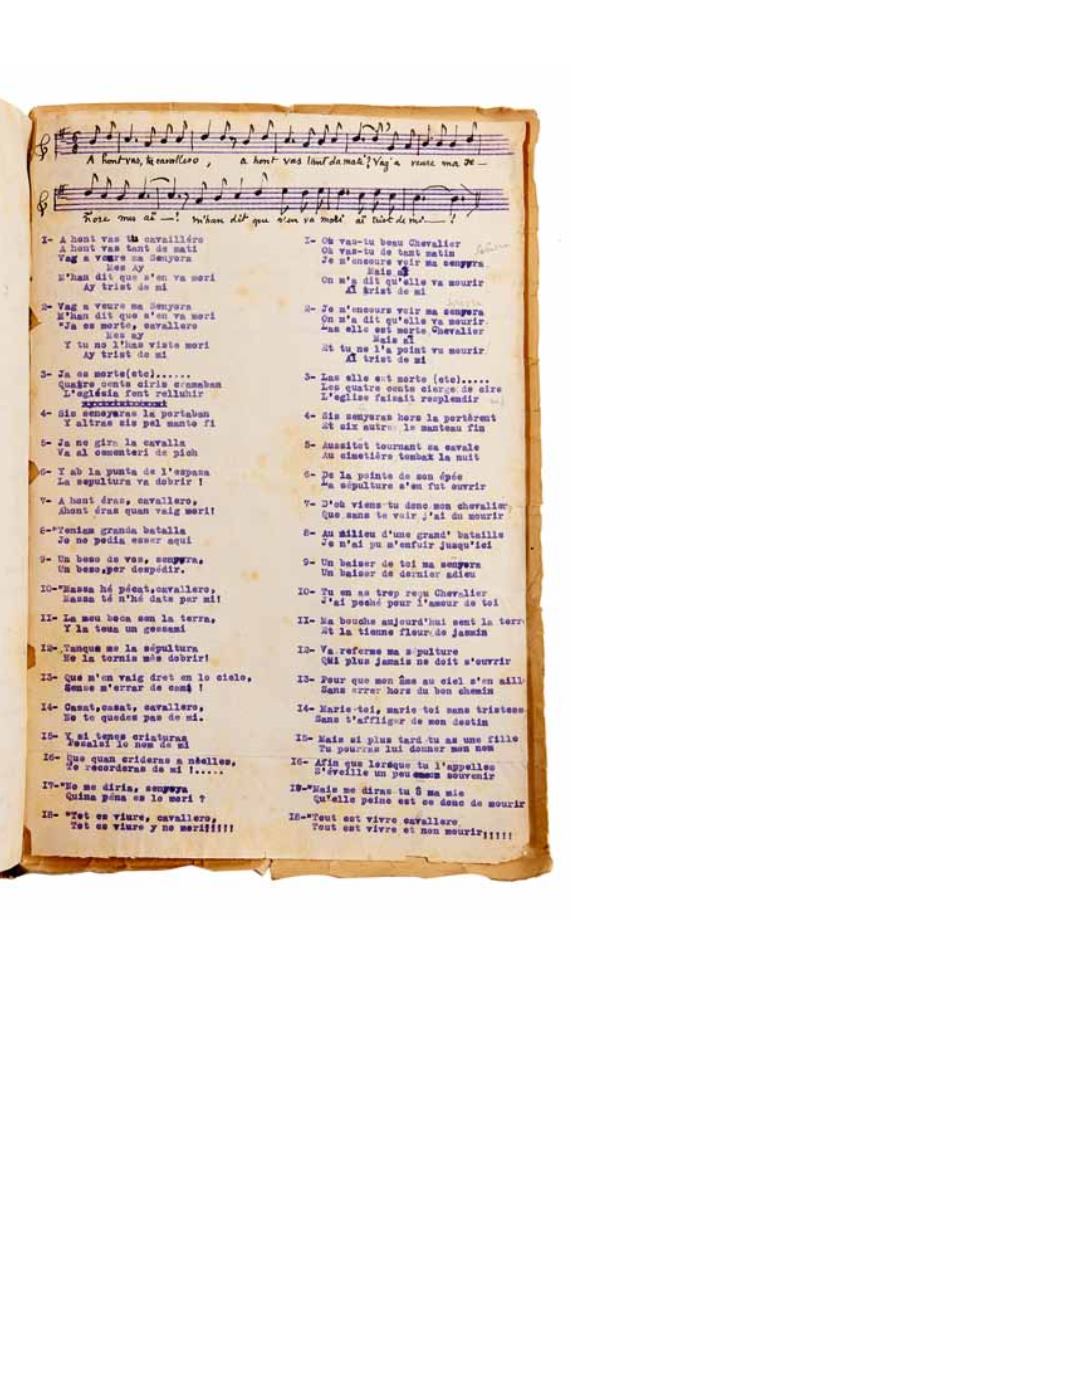 A hont vas, tu cavallero , a hont vas tant da mati? Vag'a veure ma se—
ñore mes ai —! m'han dit que s'en va mori ai trist de mi— !
I- A hont vas tu cavailléro
A hont vas tant de mati
Vag a veure ma Senyora
Mes Ay
M'han dit que s'en va mori
Ay trist de mi
2- Vag a veure ma Senyora
M'han dit que s'en va mori
"Ja es morte, cavallero
Mes ay
Y tu no l'has viste mori
Ay trist de mi
3- Ja es morte(etc)......
Quatre cents ciris cramaban
L'església fent relluhir
4- Sis senoyaras la portaban
Y altras sis pel manto fi
5- Ja ne gira la cavalla
Va al cementeri de pich
6- Y ab la punta de l'espasa
La sepultura va dobrir !
7- A hont éras, cavallero,
Ahont éras quan vaig mori!
8-"Teniam granda batalla
Jo no podia esser aqui
9- Un beso de vos, senyora,
Un beso,per despédir.
IO-"Massa hé pécat,cavallero,
Massa té n'hé dats per mi!
II- La meu boca sen la terra,
Y la teua un gessami
I2- Tanque me la sépultura
No la tornis més dobrir!
I3- Que m'en vaig dret en lo cielo,
Sense m'errar de cami !
I4- Casat,casat, cavallero,
No te quedes pas de mi.
I5- Y si tenes criaturas
Posalsi lo nom de mi
I6- Que quan crideras a néelles,
Te recorderas de mi !.....
I7-"No me diria, senyoya
Quina péna es lo mori ?
I8- "Tot es viure, cavallero,
Tot es viure y no mori!!!!!!
I- Où vas-tu beau Chevalier
Où vas-tu de tant matin
Je m'encours voir ma senyora
Mais aî
On m'a dit qu'elle va mourir
Aî trist de mi
2- Je m'encours voir ma senyora
On m'a dit qu'elle va mourir
Las elle est morte Chevalier
Mais aî
Et tu ne l'a point vu mourir
Aî trist de mi
3- Las elle est morte (etc).....
Les quatre cents cierge de cire
L'eglise faisait resplendir
4- Sis senyoras hors la portèrent
Et six autres le manteau fin
5- Aussitot tournant sa cavale
Au cimetière tombax la nuit
6- De la pointe de son épée
La sépulture s'en fut ouvrir
7- D'où viens-tu donc mon chevalier,
Que sans te voir j'ai du mourir
8- Au milieu d'une grand' bataille
Je n'ai pu m'enfuir jusqu'ici
9- Un baiser de toi ma senyora
Un baiser de dernier adieu
IO- Tu en as trop reçu Chevalier
J'ai peché pour l'amour de toi
II- Ma bouche aujourd'hui sent la terre
Et la tienne fleur de jasmin
I2- Va referme ma sépulture
QUi plus jamais ne doit s'ouvrir
I3- Pour que mon âme au ciel s'en aill
Sans errer hors du bon chemin
I4- Marie-toi, marie toi sans tristess
Sans t'affliger de mon destin
I5- Mais si plus tard tu as une fille
Tu pourras lui donner mon nom
I6- Afin que lorsque tu l'appelles
S'éveille un peu souvenir
"Mais me diras tu ma mie
Qu'elle peine est ce donc de mourir
I8-"Tout est vivre cavallero
Tout est vivre et non mourir!!!!!